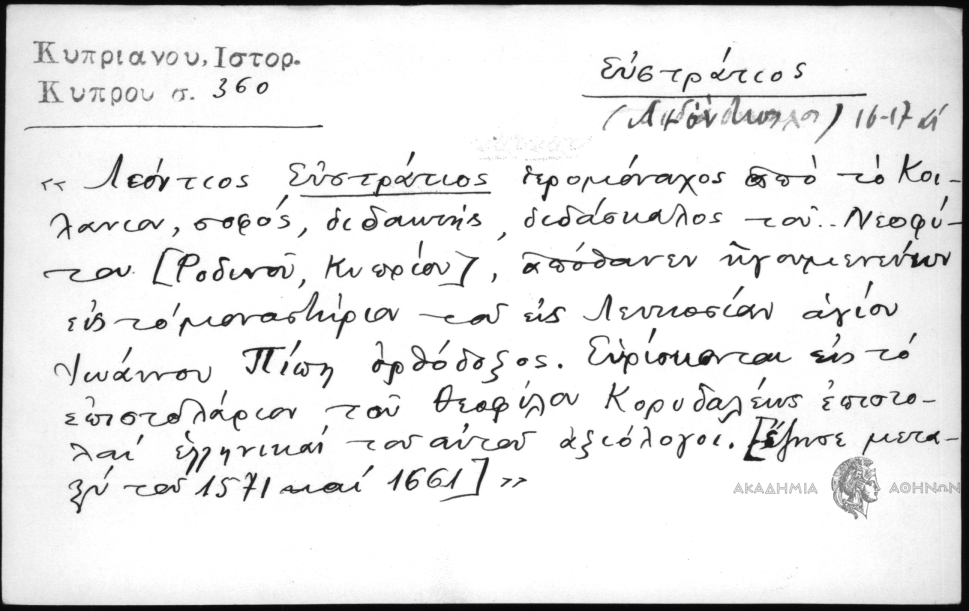 Κυπριανου, Ιστορ.
Κυπρου σ. 360
Εὐστράτιος
16-17 αἰ
« Λεόντιος Εὐστράτιος ἱερομόναχος ἀπό τό Κοι-
λάνιον, σοφός, διδακτής, διδάσκαλος τοῦ.. Νεοφύ-
του [Ροδινοῦ, Κυπρίου], ἀπόθανεν ἡγουμενεύων
εἰς τό μοναστήριον τοῦ εἰς Λευκοσίαν ἁγίου
Ἰωάννου Πίπη ὀρθόδοξος. Εὑρίσκονται εἰς τό
ἐπιστολάριον τοῦ Θεοφίλου Κορυδαλέως ἐπιστο-
λαί ἑλληνικαί τοῦ αὐτοῦ ἀξιόλογοι. [ἔζησε μετα-
ξύ τοῦ 1571 καί 1661] »
ΑΚΑΔΗΜΙΑ ΑΘΗΝΩΝ